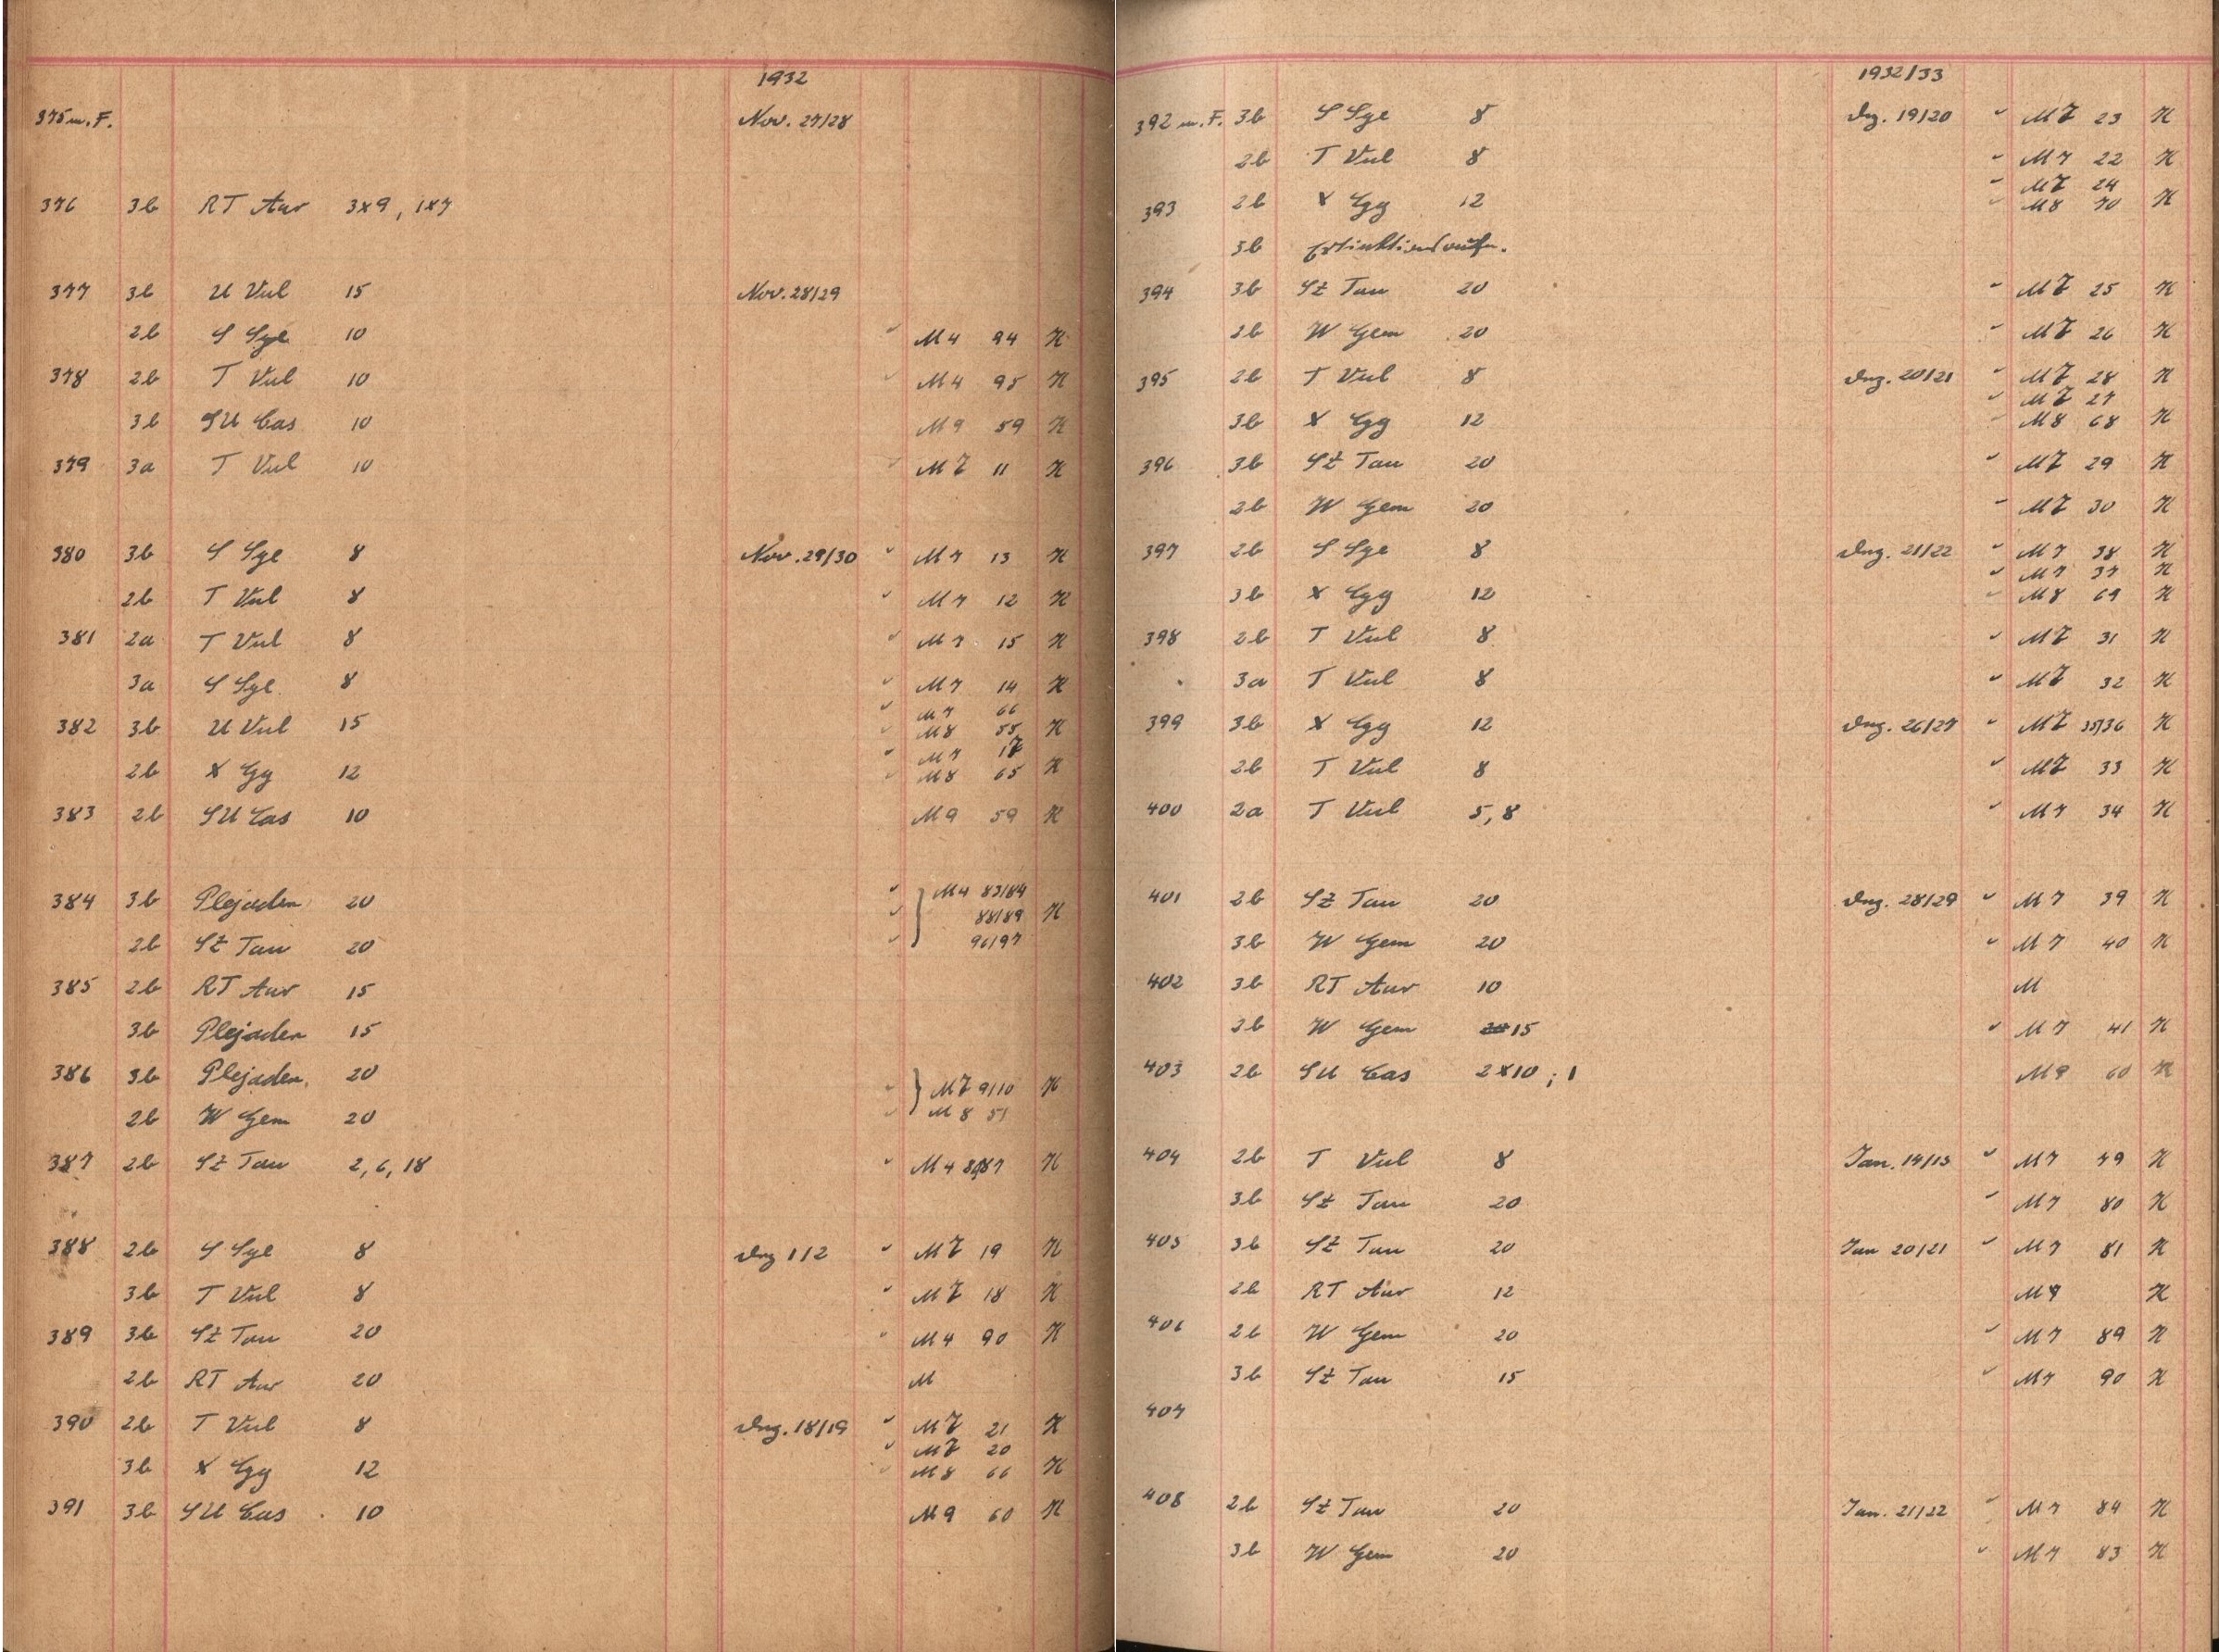 1932
375 m. F. Nov. 27/28
376 3b RT Aur 3x9, 1x7
377 3b U Vul 15 Nov. 28/29
2b S Sge 10 ✓ M4 94 H
378 2b T Vul 10 ✓ M4 95 H
3b SU Cas 10 M9 59 H
379 3a T Vul 10 ✓ M7 11 H
380 3b S Sge 8 Nov. 29/30 ✓ M7 13 H
2b T Vul 8 ✓ M7 12 H
381 2a T Vul 8 ✓ M7 15 H
3a S Sge 8 ✓ M7 14 H
✓ M7 66
382 3b U Vul 15 M8 55 H
✓ M7 17
2b X Cyg 12 ✓ M8 65 H
383 2b SU Cas 10 M9 59 H
384 3b Plejaden 20 ✓ } M4 83/84
✓ 88/89 H
2b SZ Tau 20 ✓ 96/97
385 2b RT Aur 15
3b Plejaden 15
386 3b Plejaden 20 ✓ } M7 9/10 H
2b W Gem 20 ✓ M8 51
387 2b SZ Tau 2, 6, 18 ✓ M4 87 H
388 2b S Sge 8 Dez 1/2 ✓ M7 19 H
3b T Vul 8 ✓ M7 18 H
389 3b SZ Tau 20 ✓ M4 90 H
2b RT Aur 20 M
390 2b T Vul 8 Dez. 18/19 ✓ M7 21 H
✓ M7 20
3b X Cyg 12 ✓ M8 66 H
391 3b SU Cas 10 M9 60 H
1932/33
392 m. F. 3b S Sge 8 Dez. 19/20 ✓ M7 23 H
2b T Vul 8 ✓ M7 22 H
✓ M7 24
393 2b X Cyg 12 ✓ M8 70 H
3b Extinktionsaufn.
394 3b SZ Tau 20 ✓ M7 25 H
2b W Gem 20 ✓ M7 26 H
395 2b T Vul 8 Dez. 20/21 ✓ M7 28 H
✓ M7 27
3b X Cyg 12 ✓ M8 68 H
396 3b SZ Tau 20 ✓ M7 29 H
2b W Gem 20 ✓ M7 30 H
397 2b S Sge 8 Dez. 21/22 ✓ M7 38 H
✓ M7 37 H
3b X Cyg 12 ✓ M8 69 H
398 2b T Vul 8 ✓ M7 31 H
3a T Vul 8 ✓ M7 32 H
399 3b X Cyg 12 Dez. 26/27 ✓ M7 35/36 H
2b T Vul 8 ✓ M7 33 H
400 2a T Vul 5, 8 ✓ M7 34 H
401 2b SZ Tau 20 Dez. 28/29 ✓ M7 39 H
3b W Gem 20 ✓ M7 40 H
402 3b RT Aur 10 M
2b W Gem 15 ✓ M7 41 H
403 2b SU Cas 2x10 ; 1 M9 60 H
404 2b T Vul 8 Jan. 14/15 ✓ M7 79 H
3b SZ Tau 20 ✓ M7 80 H
405 3b SZ Tau 20 Jan 20/21 ✓ M7 81 H
2b RT Aur 12 M9 H
406 2b W Gem 20 ✓ M7 89 H
3b SZ Tau 15 ✓ M7 90 H
407
408 2b SZ Tau 20 Jan. 21/22 ✓ M7 84 H
3b W Gem 20 ✓ M7 83 H